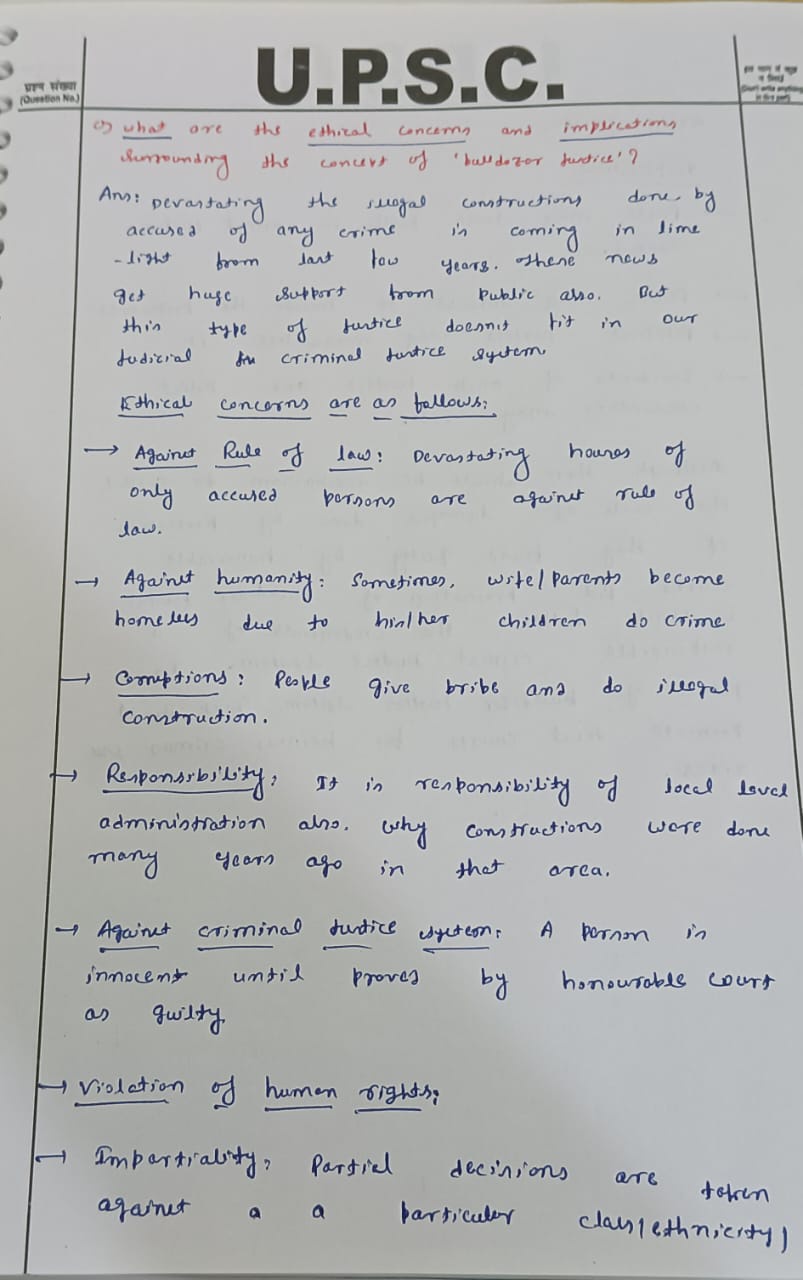 U.P.S.C.
प्रश्न संख्या
(Question No.)
what are the ethical concerns and implications
surrounding the concept of 'bulldozor justice'?
Ans: Devastating the illegal constructions done by
accused of any crime is coming in lime
-light from last few years. These news
get huge support from public also. But
this type of justice doesn't fit in our
judicial criminal justice system.
Ethical concerns are as follows:
→ Against Rule of law: Devastating houses of
only accused persons are against rule of
law.
→ Against humanity: Sometimes, wife/parents become
homeless due to his/her children do crime
→ Corruptions: People give bribe and do illegal
construction.
→ Responsibility: It is responsibility of local level
administration also. Why constructions were done
many years ago in that area.
→ Against criminal justice system: A person is
innocent until proves by honourable court
as guilty.
→ Violation of human rights:
→ Impartiality: Partial decisions are taken
against a a particular class(ethnicity)